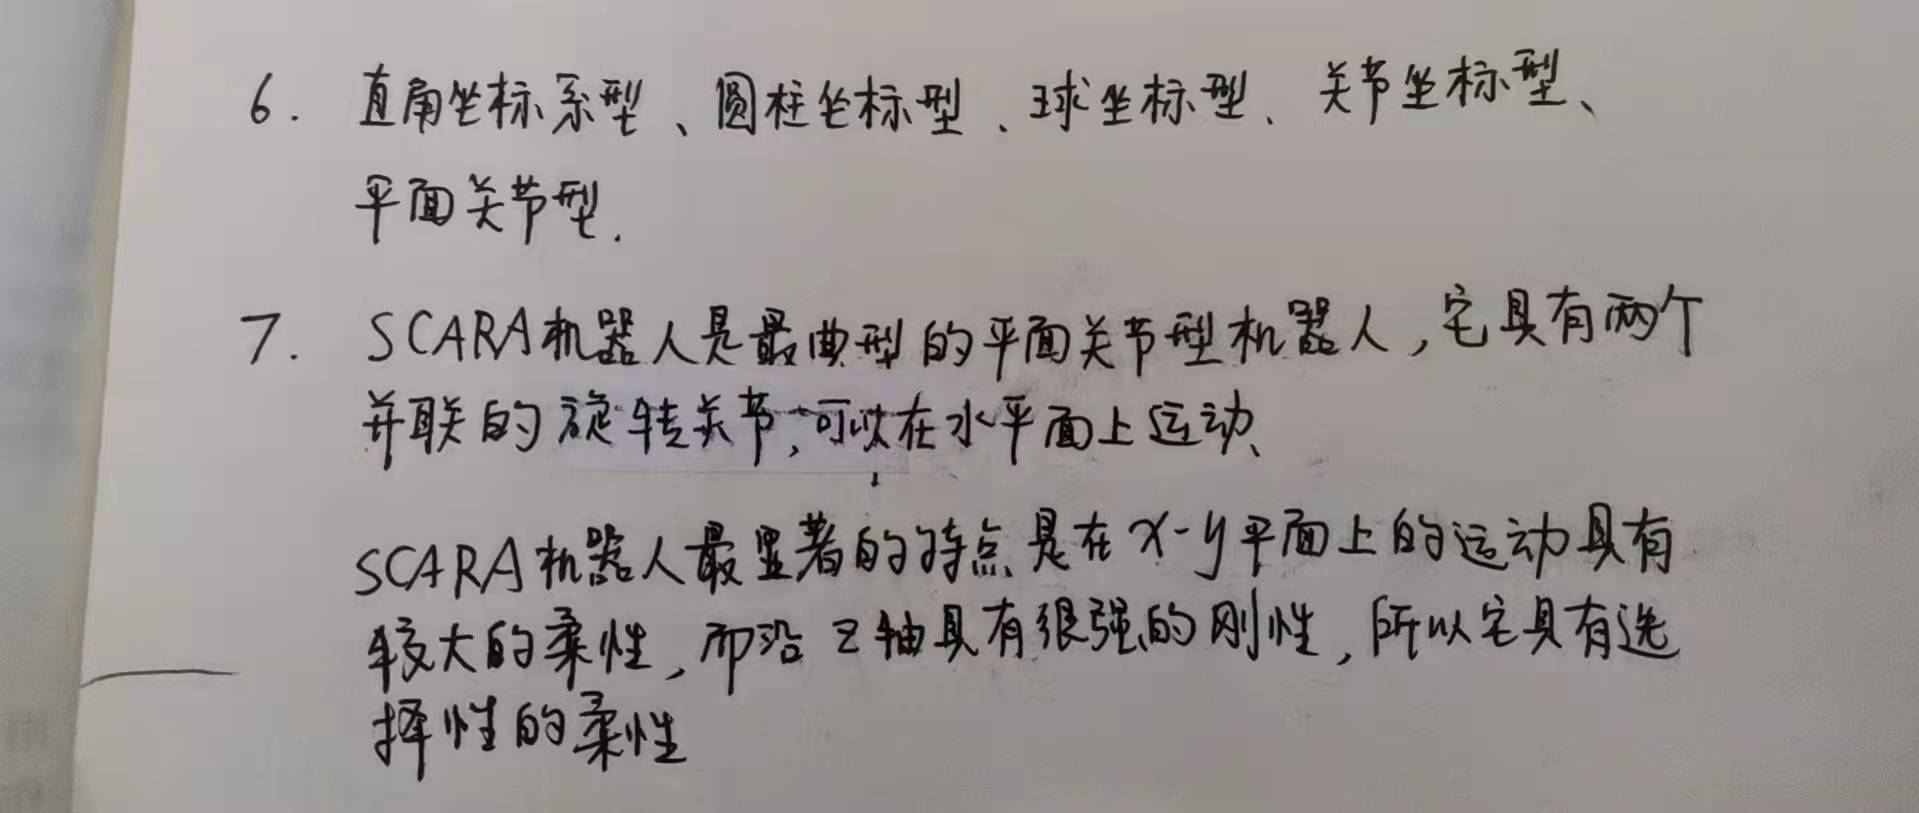 6. 直角坐标系型、圆柱坐标型、球坐标型、关节坐标型、
平面关节型.
7. SCARA机器人是最典型的平面关节型机器人,它具有两个
并联的旋转关节,可以在水平面上运动、
SCARA机器人最显著的特点是在x-y平面上的运动具有
较大的柔性,而沿z轴具有很强的刚性,所以它具有选
择性的柔性